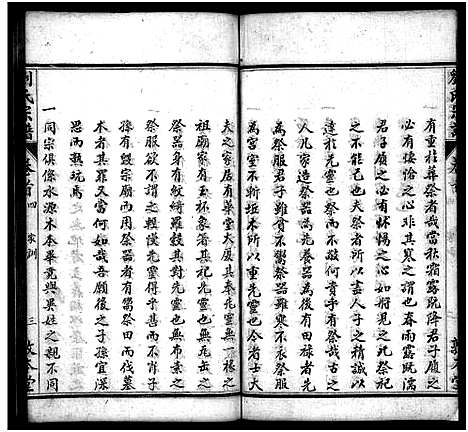 有重於葬祭者哉當秋霜既降君子履之
必有悽愴之心非其寒之謂也春雨露既濡
君子履之必有怵惕之心如將見之死祭祀
之不能已也夫祭者所以盡人子之精誠以
達於先靈而不敢何貴乎有祭哉古之
人凡家造祭器為先養器為後有田祿者先
為祭服君子雖貧不鬻祭器雖寒不衣祭服
為宮室不斬坵木所以重先靈也今者士大
夫之家有華堂大廈其奉先靈或無
祖廟家有玉杯象箸其祀先或無缶缻之
祭器居常則有紋繡其祭先也或無布素之
祭服欲不謂之輕慢先靈得乎甚而不肖子
孫有毀宗廟而用者有鬻祭田而伐墓
木者其罪又當何如哉吾願後之子孫宜深
思而熟玩焉
一同宗俱係水源木本畢竟與異姓之親不同
劉氏宗譜
卷首
四
家訓
三
敦本堂